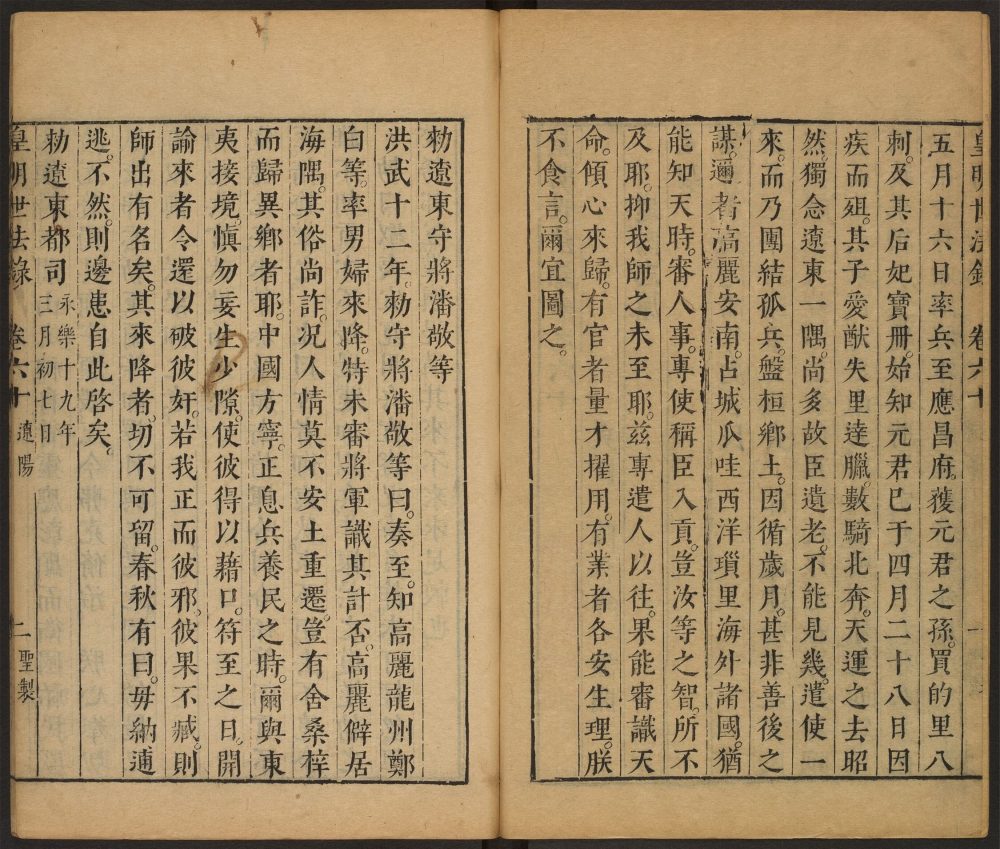 皇明世法錄 卷六十
五月十六日率兵至應昌府。獲元君之孫。買的里八
剌。及其后妃寶冊。始知元君已于四月二十八日因
疾而殂。其子愛猷失里達臘。數騎北奔。天運之去昭
然。獨念遼東一隅。尚多故臣遺老。不能見幾。遣使一
來。而乃團結孤兵。盤桓鄉土。因循歲月。甚非善後之
謀。邇者高麗安南。占城瓜哇西洋瑣里海外諸國。猶
能知天時。審人事。專使稱臣入貢。豈汝等之智。所不
及耶。抑我師之未至耶。茲專遣人以往。果能審識天
命。傾心來歸。有官者量才擢用。有業者各安生理。朕
不食言。爾宜圖之。
勑遼東守將潘敬等
洪武十二年。勑守將潘敬等曰。奏至。知高麗龍州鄭
白等。率男婦來降。特未審將軍識其計否。高麗僻居
海隅。其俗尚詐。况人情莫不安土重遷。豈有舍桑梓
而歸異鄉者耶。中國方寧。正息兵養民之時。爾與東
夷接境。慎勿妄生少隙。使彼得以藉口。符至之日。開
諭來者令還以破彼奸。若我正而彼邪。彼果不臧。則
師出有名矣。其來降者。切不可留。春秋有曰。毋納逋
逃。不然。則邊患自此啓矣。
勑遼東都司 永樂十九年三月初七日
皇明世法錄 卷六十 遼陽 二 聖製